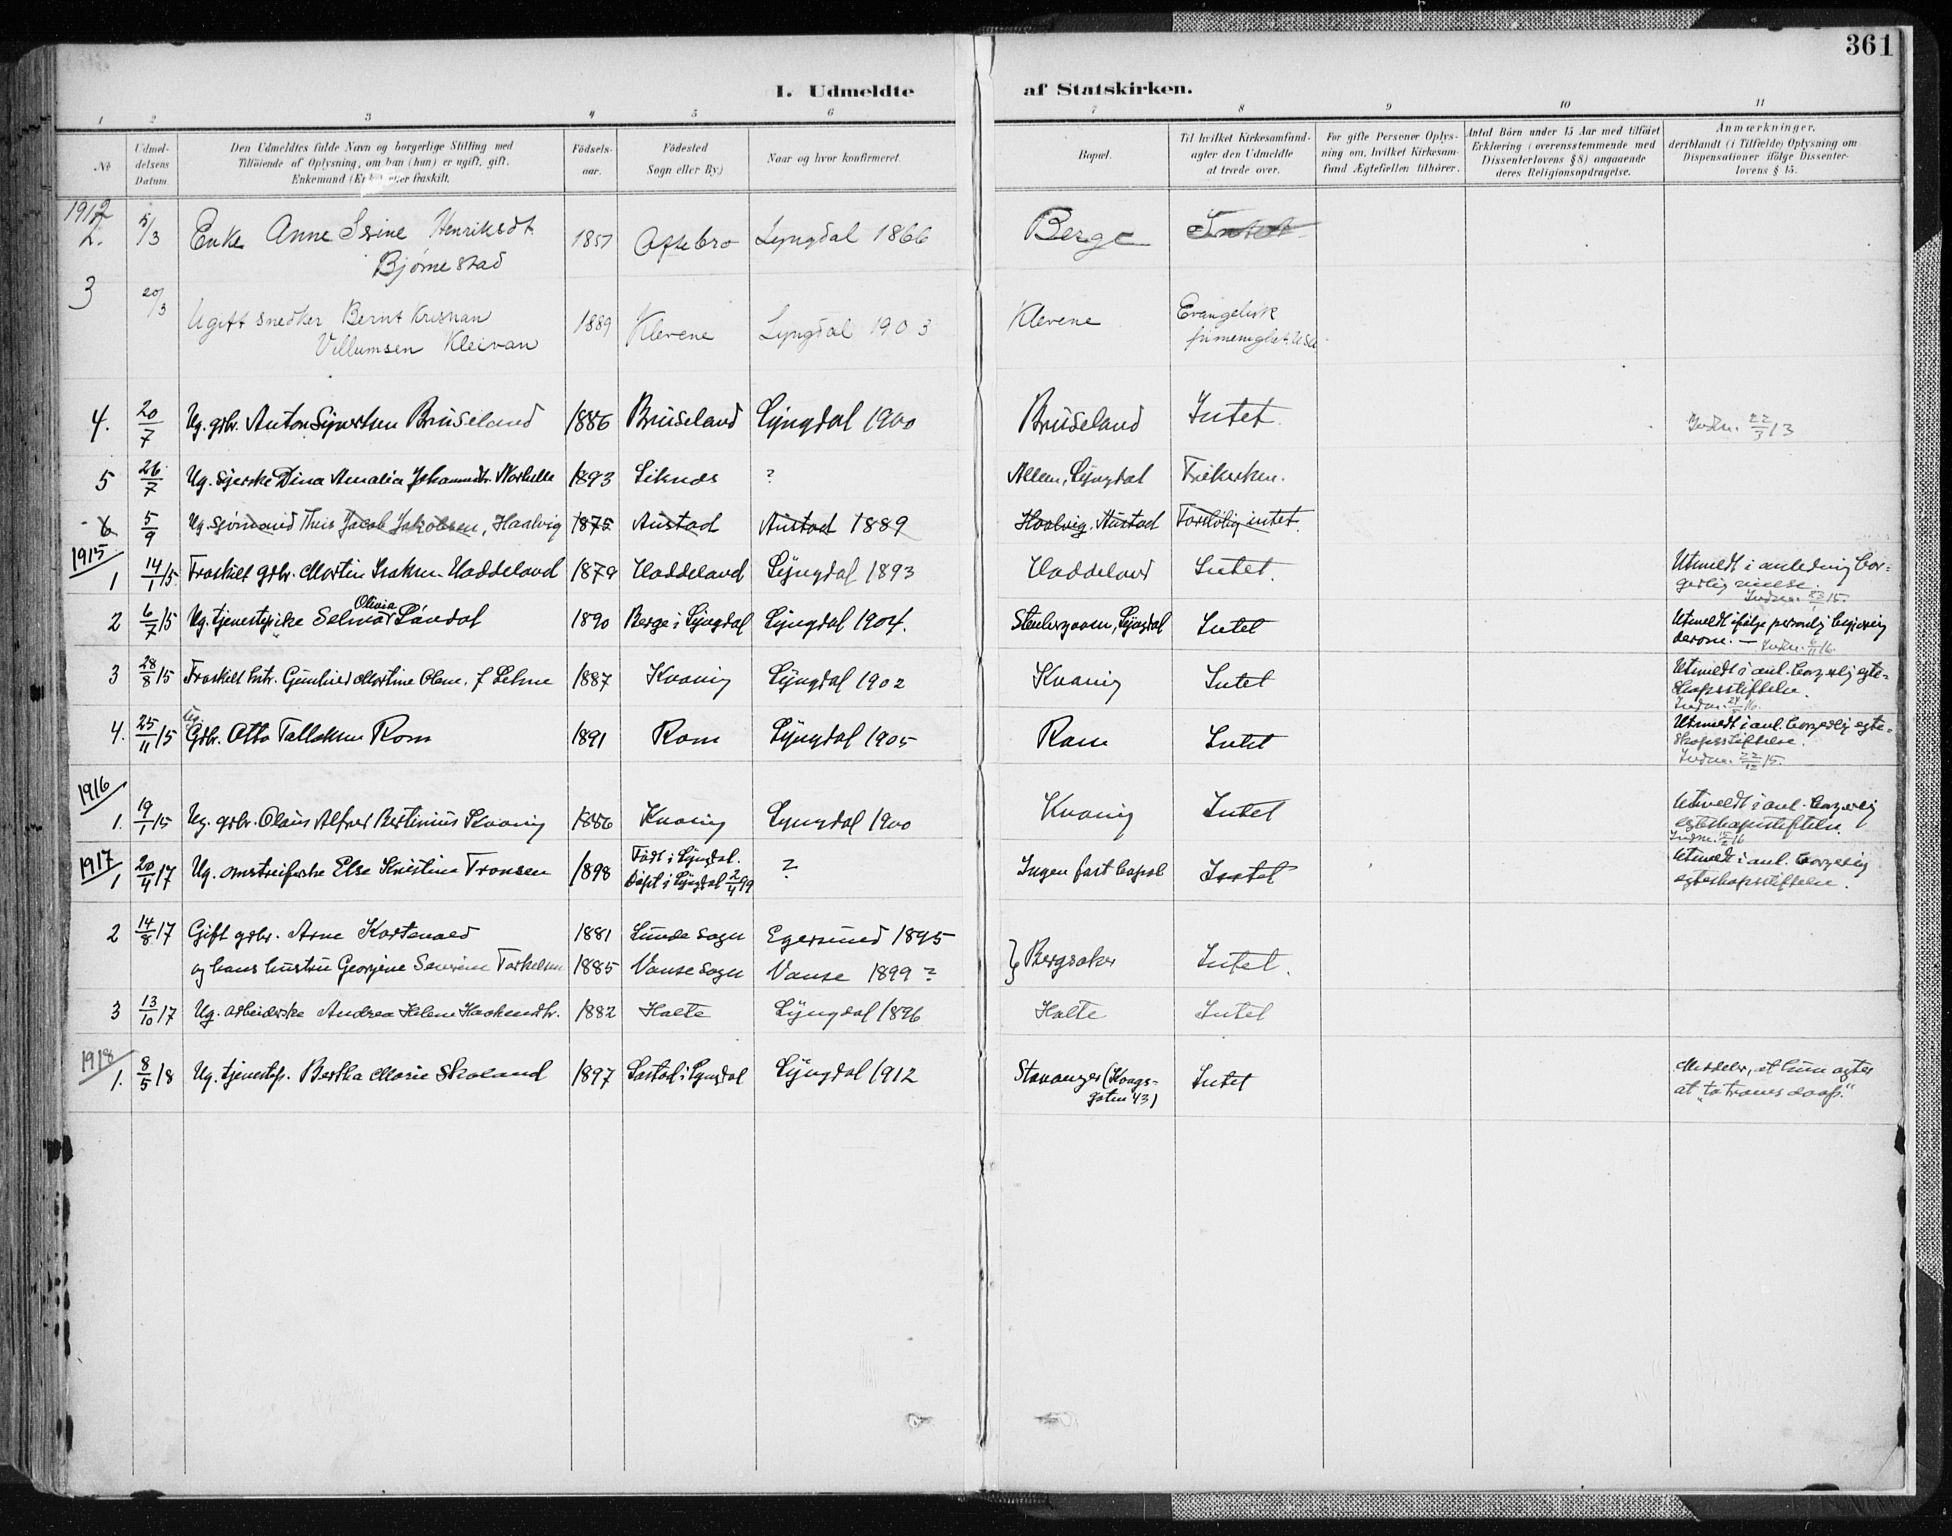 361
I. Udmeldte af Statskirken.
1 2 3 4 5 6 7 8 9 10 11
No
Udmel-
delsens
Datum.
Den Udmeldtes fulde Navn og borgerlige Stilling med
Tilføiende af Oplysning, om han (hun) er ugift, gift.
Enkemand (Enke) eller fraskilt.
Fødsels-
aar.
Fødested
Sogn eller By)
Naar og hvor konfirmeret.
Bopæl.
Til hvilket Kirkesamfund-
agter den Udmeldte
at træde over.
For gifte Personer Oplys-
ning om, hvilket Kirkesam-
fund Ægtefællen tilhører.
Antal Børn under 15 Aar med tilføiet
Erklæring (overensstemmende med
Dissenterlovens § 8) angaaende
deres Religionsopdragelse.
Anmærkninger,
deriblandt (i Tilfælde) Oplysning om
Dispensationer ifølge Dissenter-
lovens § 15.
1912
2. 5/3 Enke Anne Serine Henriksdt. 1851 Oftebro Lyngdal 1866 Berge Intet
Bjørnestad
3 20/3 Ugift snedker Bernt Kristian 1889 Klevene Lyngdal 1903 Klevene Evangelisk
Villumsen Kleivan
4. 20/7 Ug. gbr. Anton Syvertsen Bruseland 1886 Bruseland Lyngdal 1900 Bruseland Intet. Indm. 22/3 13
5 26/7 Ug. syerske Dina Amalia 1893 Liknes ? Lyngdal Frikirken.
6 5/9 Ug. sjømand Theis Jacob Jakobsen, Haalvig 1875 Austad Austad 1889 Haalvig, Austad Foreløbig intet.
1915
1 14/1 15 Fraskilt gbr. Martin Isaksen Haddeland 1879 Haddeland Lyngdal 1893 Haddeland Intet. Utmeldt i anledning bor-
gerlig vielse.
Indm. 15.
2 6/7 15 Ug. tjenestepike Selma Olivia Landal 1890 Berge i Lyngdal Lyngdal 1904. Lyngdal Intet Utmeldt ifølge personlig begjæring
derom. — Indm. 6/11 16.
3 28/8 15 Fraskilt hstr. Gunhild Martine Olsen, f Lehne 1887 Kvavig Lyngdal 1902 Kvavig Intet Utmeldt i anl. borgerlig egte-
skapsstiftelse.
4. 25/11 15 Ug. Gbr. Otto Tallaksen Rom 1891 Rom Lyngdal 1905 Rom Intet Utmeldt i anl. borgerlig egte-
skapsstiftelse.
Indm. 22/12 15.
1916
1. 19/1 15 Ug. gbr. Olaus Alfred Bertinius Kvavig 1886 Kvavig Lyngdal 1900 Kvavig Intet Utmeldt i anl. borgerlig
egteskapsstiftelse.
1917
1 20/4 17 Ug. omstreiferske Else Kristine Fransen 1898 Født i Lyngdal. ? Ingen fast bopæl Intet Utmeldt i anl. borgerlig
Døpt i Lyngdal 2/4 99 egteskapsstiftelse.
2 14/8 17 Gift gbr. Arne Kartevold 1881 Lunde sogn Egersund 1895
og hans hustru Georgine Severine Torkelsen 1885 Vanse sogn Vanse 1899 ? } Bergsaker Intet.
3 13/10 17 Ug. arbeiderske Andrea Helene Haakensdtr. 1882 Halte Lyngdal 1896 Halte Intet
1918
1. 8/5 18 Ug. tjenestep. Bertha Marie Skoland 1897 Lyngdal Lyngdal 1912 Stavanger (Kongs- Intet Meddeler, at hun agter
gaten 43) at "ta troens daap."